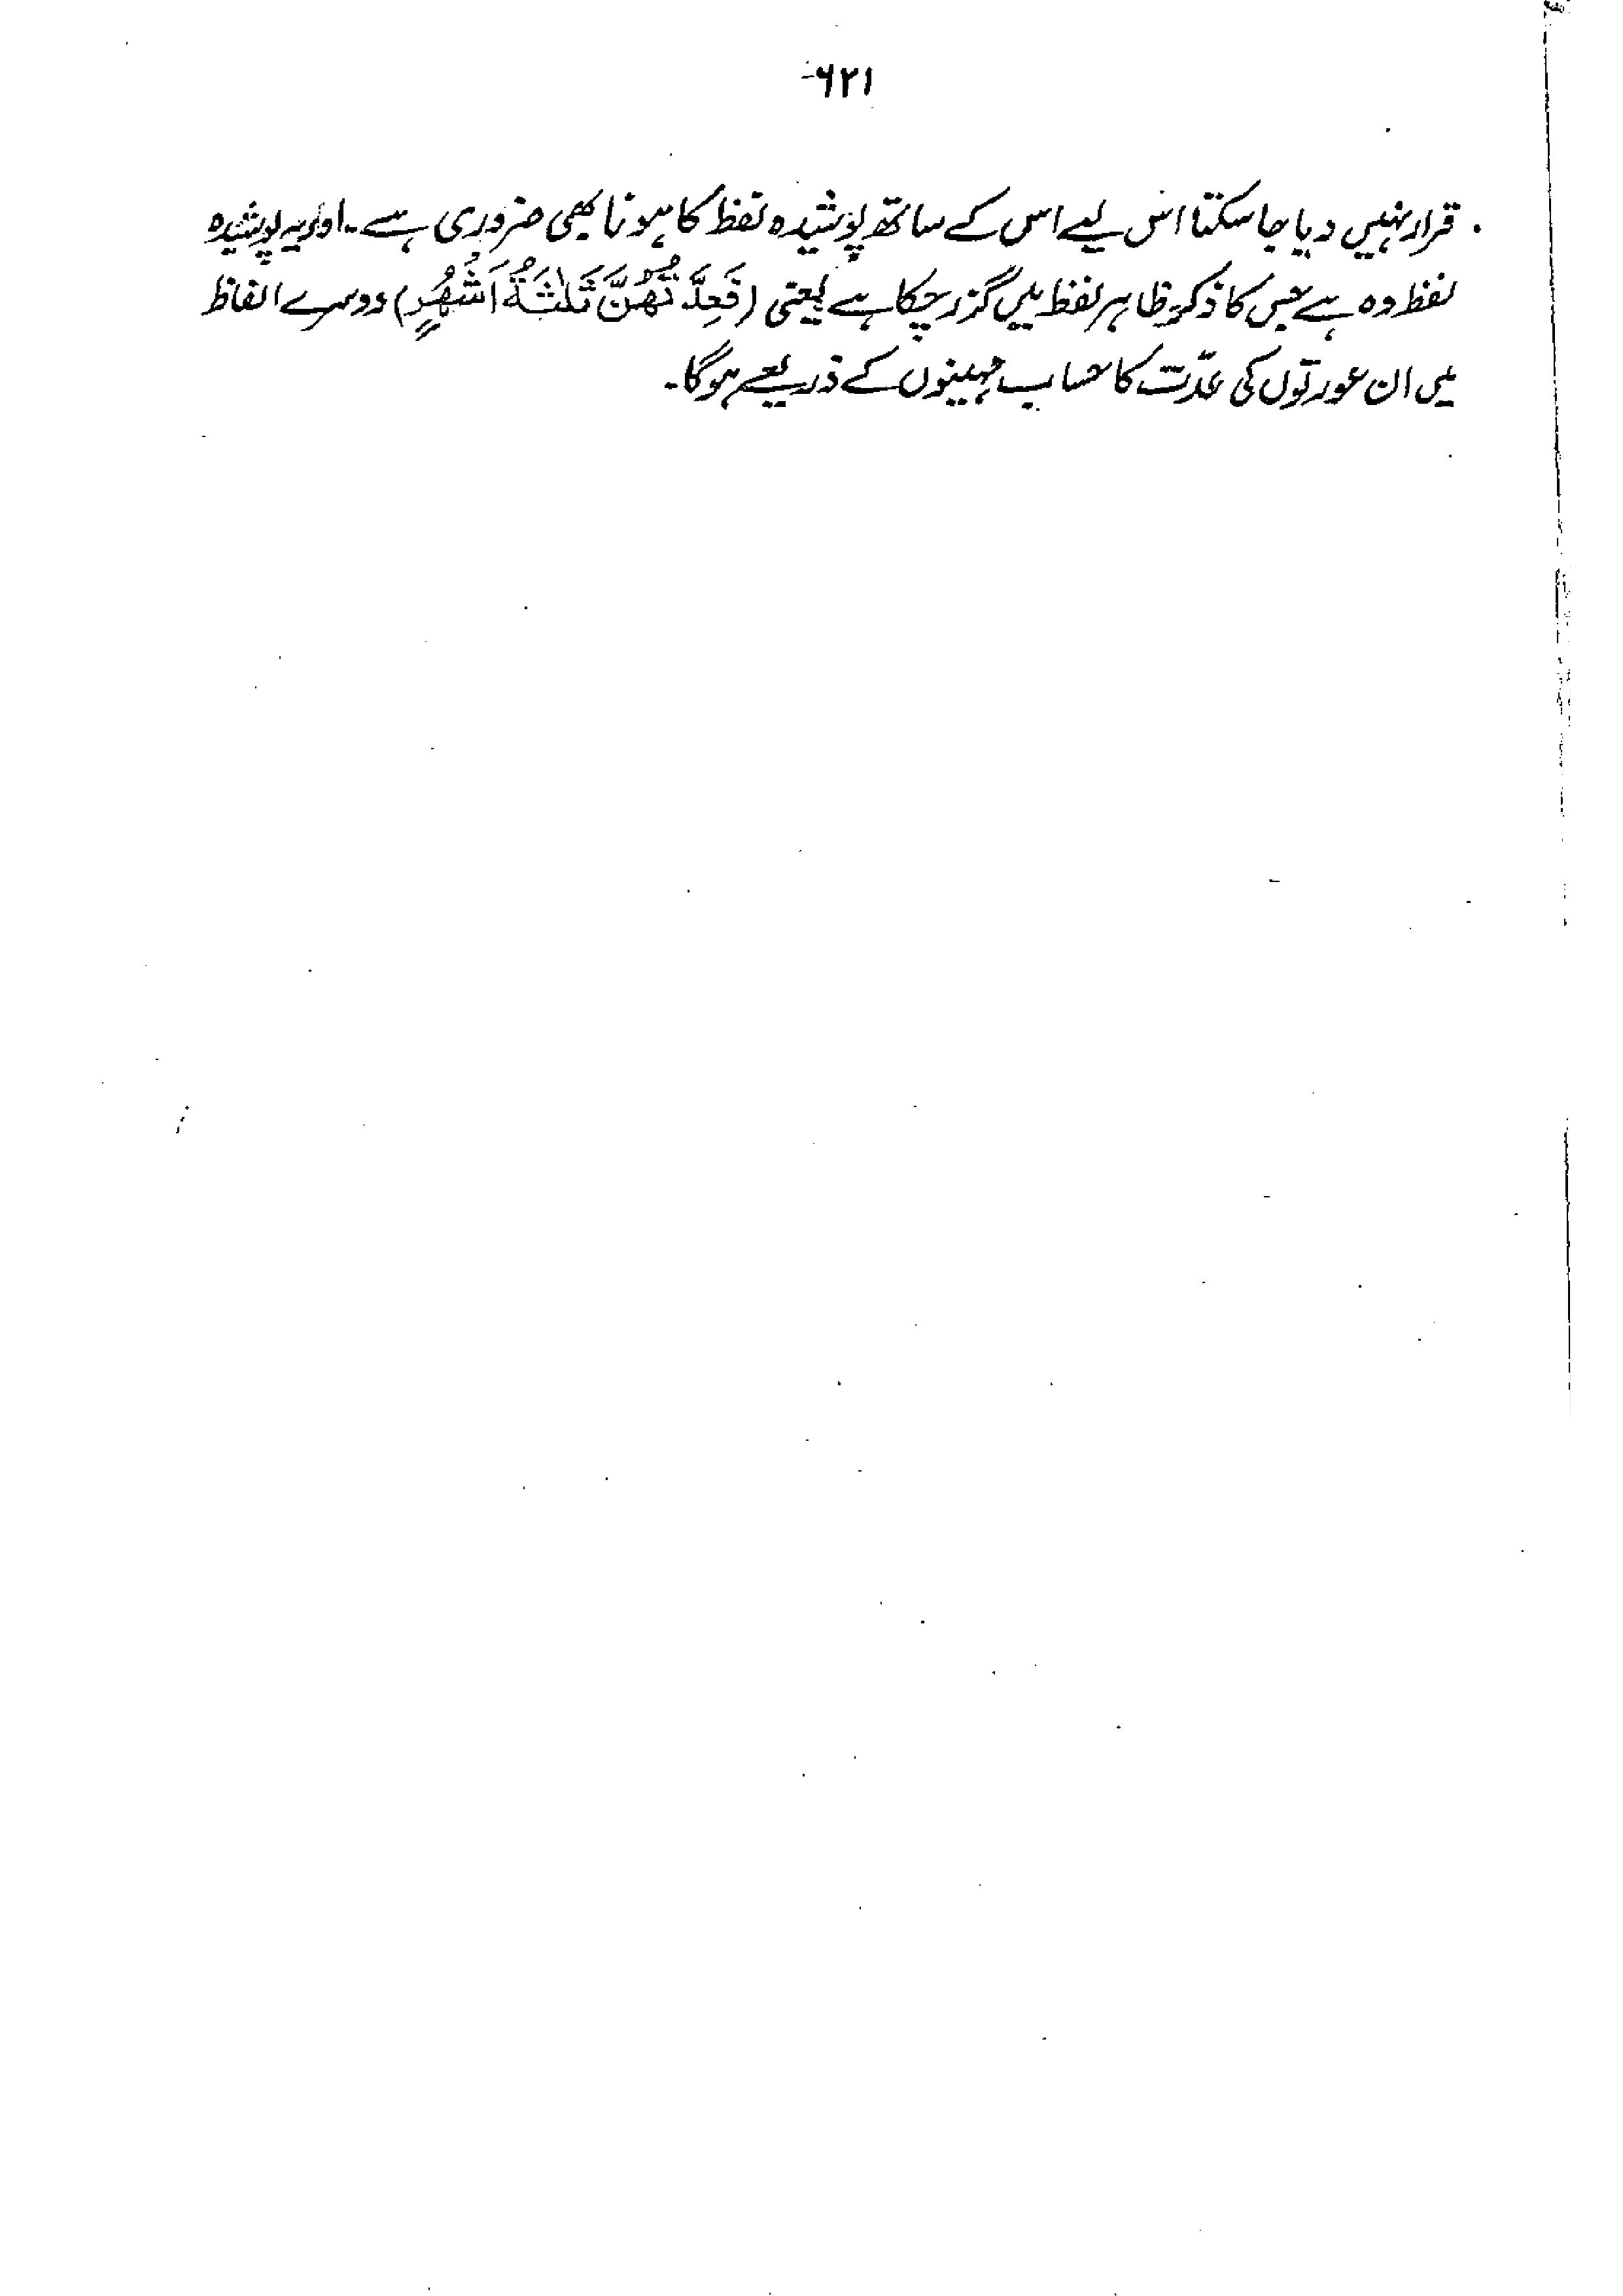 ۶۲۱
قرار نہیں دیا جا سکتا اس لیے اس کے ساتھ پوشیدہ لفظ کا ہونا بھی ضروری ہے۔ اور یہ پوشیدہ
لفظ وہ ہے جس کا ذکر ظاہر لفظ میں گزر چکا ہے یعنی (فَعِدَّتُهُنَّ ثَلٰثَةُ اَشْهُرٍ) دوسرے الفاظ
میں ان عورتوں کی عدّت کا حساب مہینوں کے ذریعے ہوگا۔